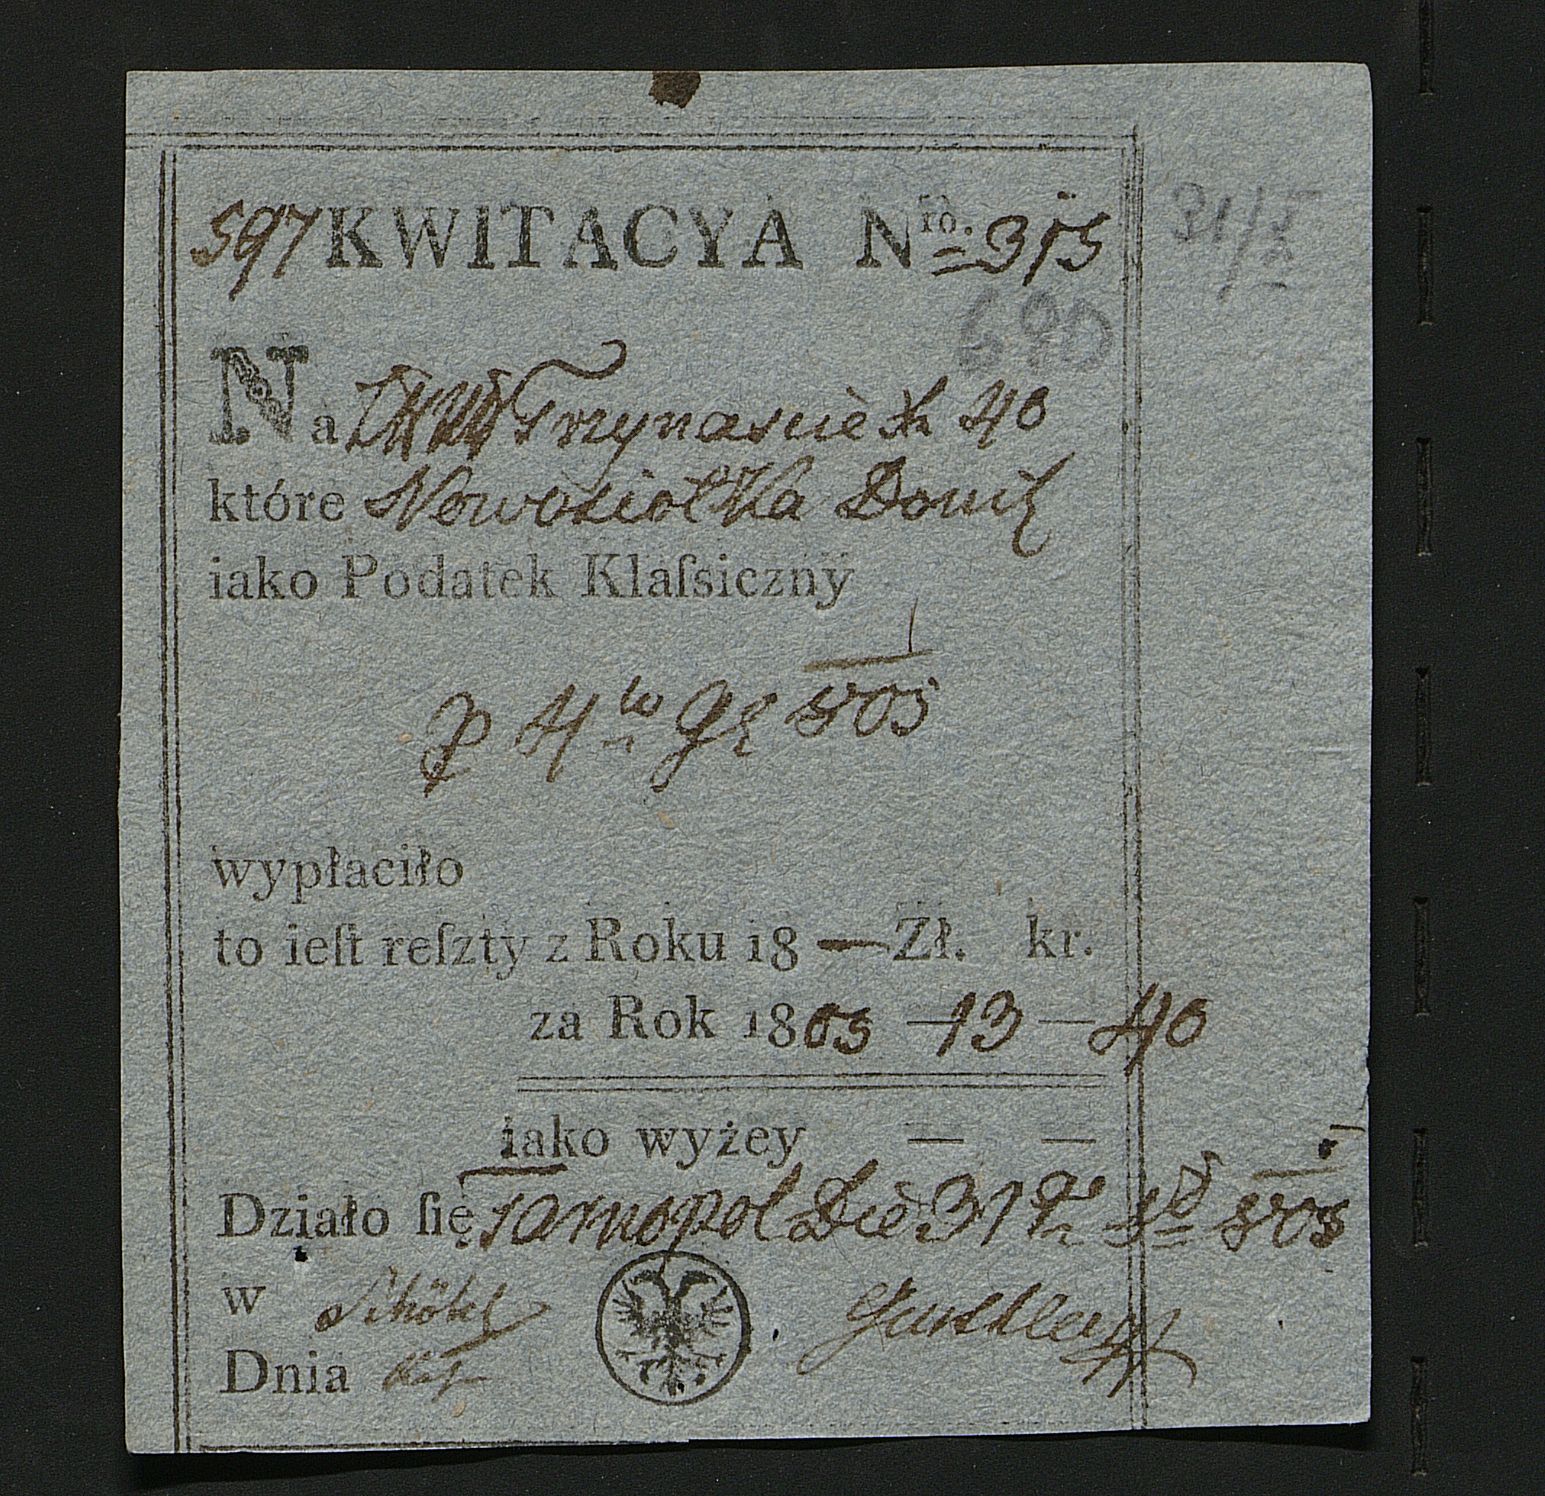 597 KWITACYA Nro. 315
31/
690
Na Trzynascie x 40
które Nowosiołka Domi
iako Podatek Klaſsiczny
P 4to 805
wypłaciło
to ieſt reſzty z Roku 18 — Zł. kr.
za Rok 1805 — 13 — 40
iako wyżey — —
Działo ſię Tarnopol 31 805
w
Dnia